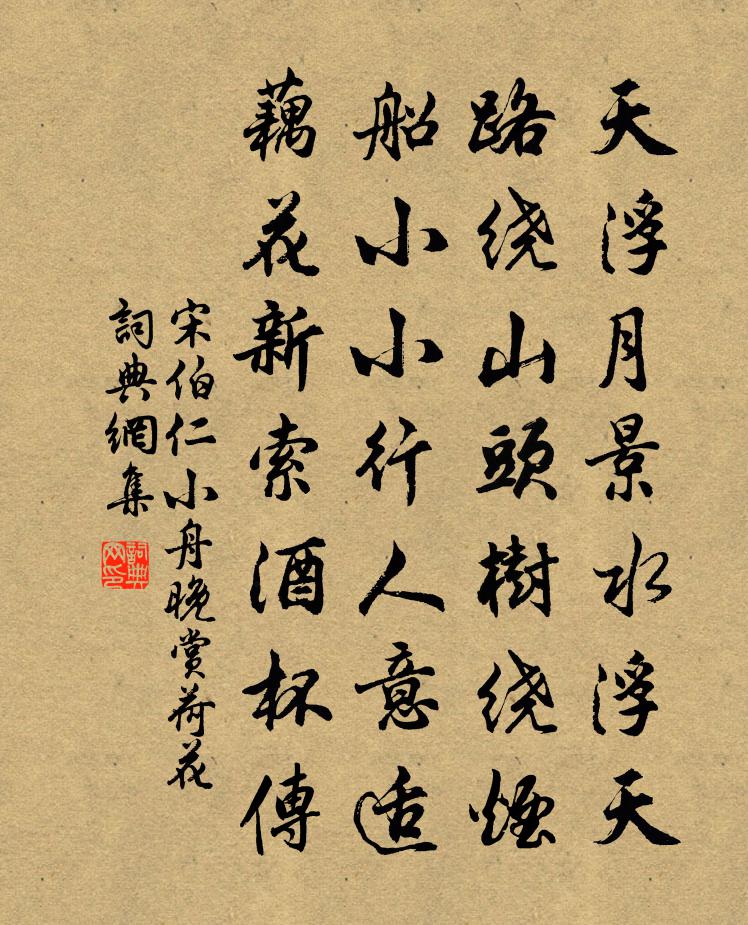 天浮月景水浮天
路绕山頭樹绕煙
船小小行人意适
藕花新索酒杯傳
宋伯仁小舟晚赏荷花
詞典網集
詞典
网印